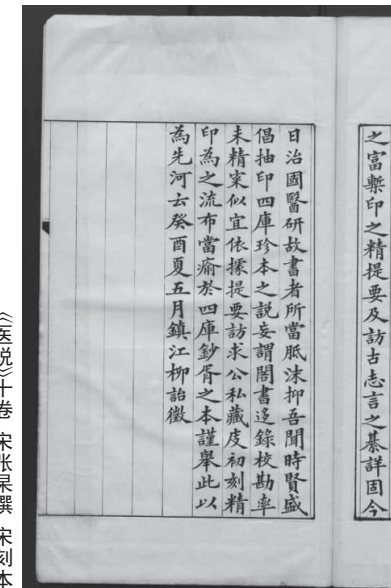 之富槧印之精提要及訪古志言之綦詳固今
日治國醫研故書者所當脈沫抑吾聞時賢盛
倡抽印四庫珍本之説妄謂閣書迻錄校勘率
未精寀似宜依據提要訪求公私藏庋初刻精
印為之流布當瘉於四庫鈔胥之本謹舉此以
為先河云癸酉夏五月鎮江柳詒徵
《医说》十卷 宋张杲撰 宋刻本